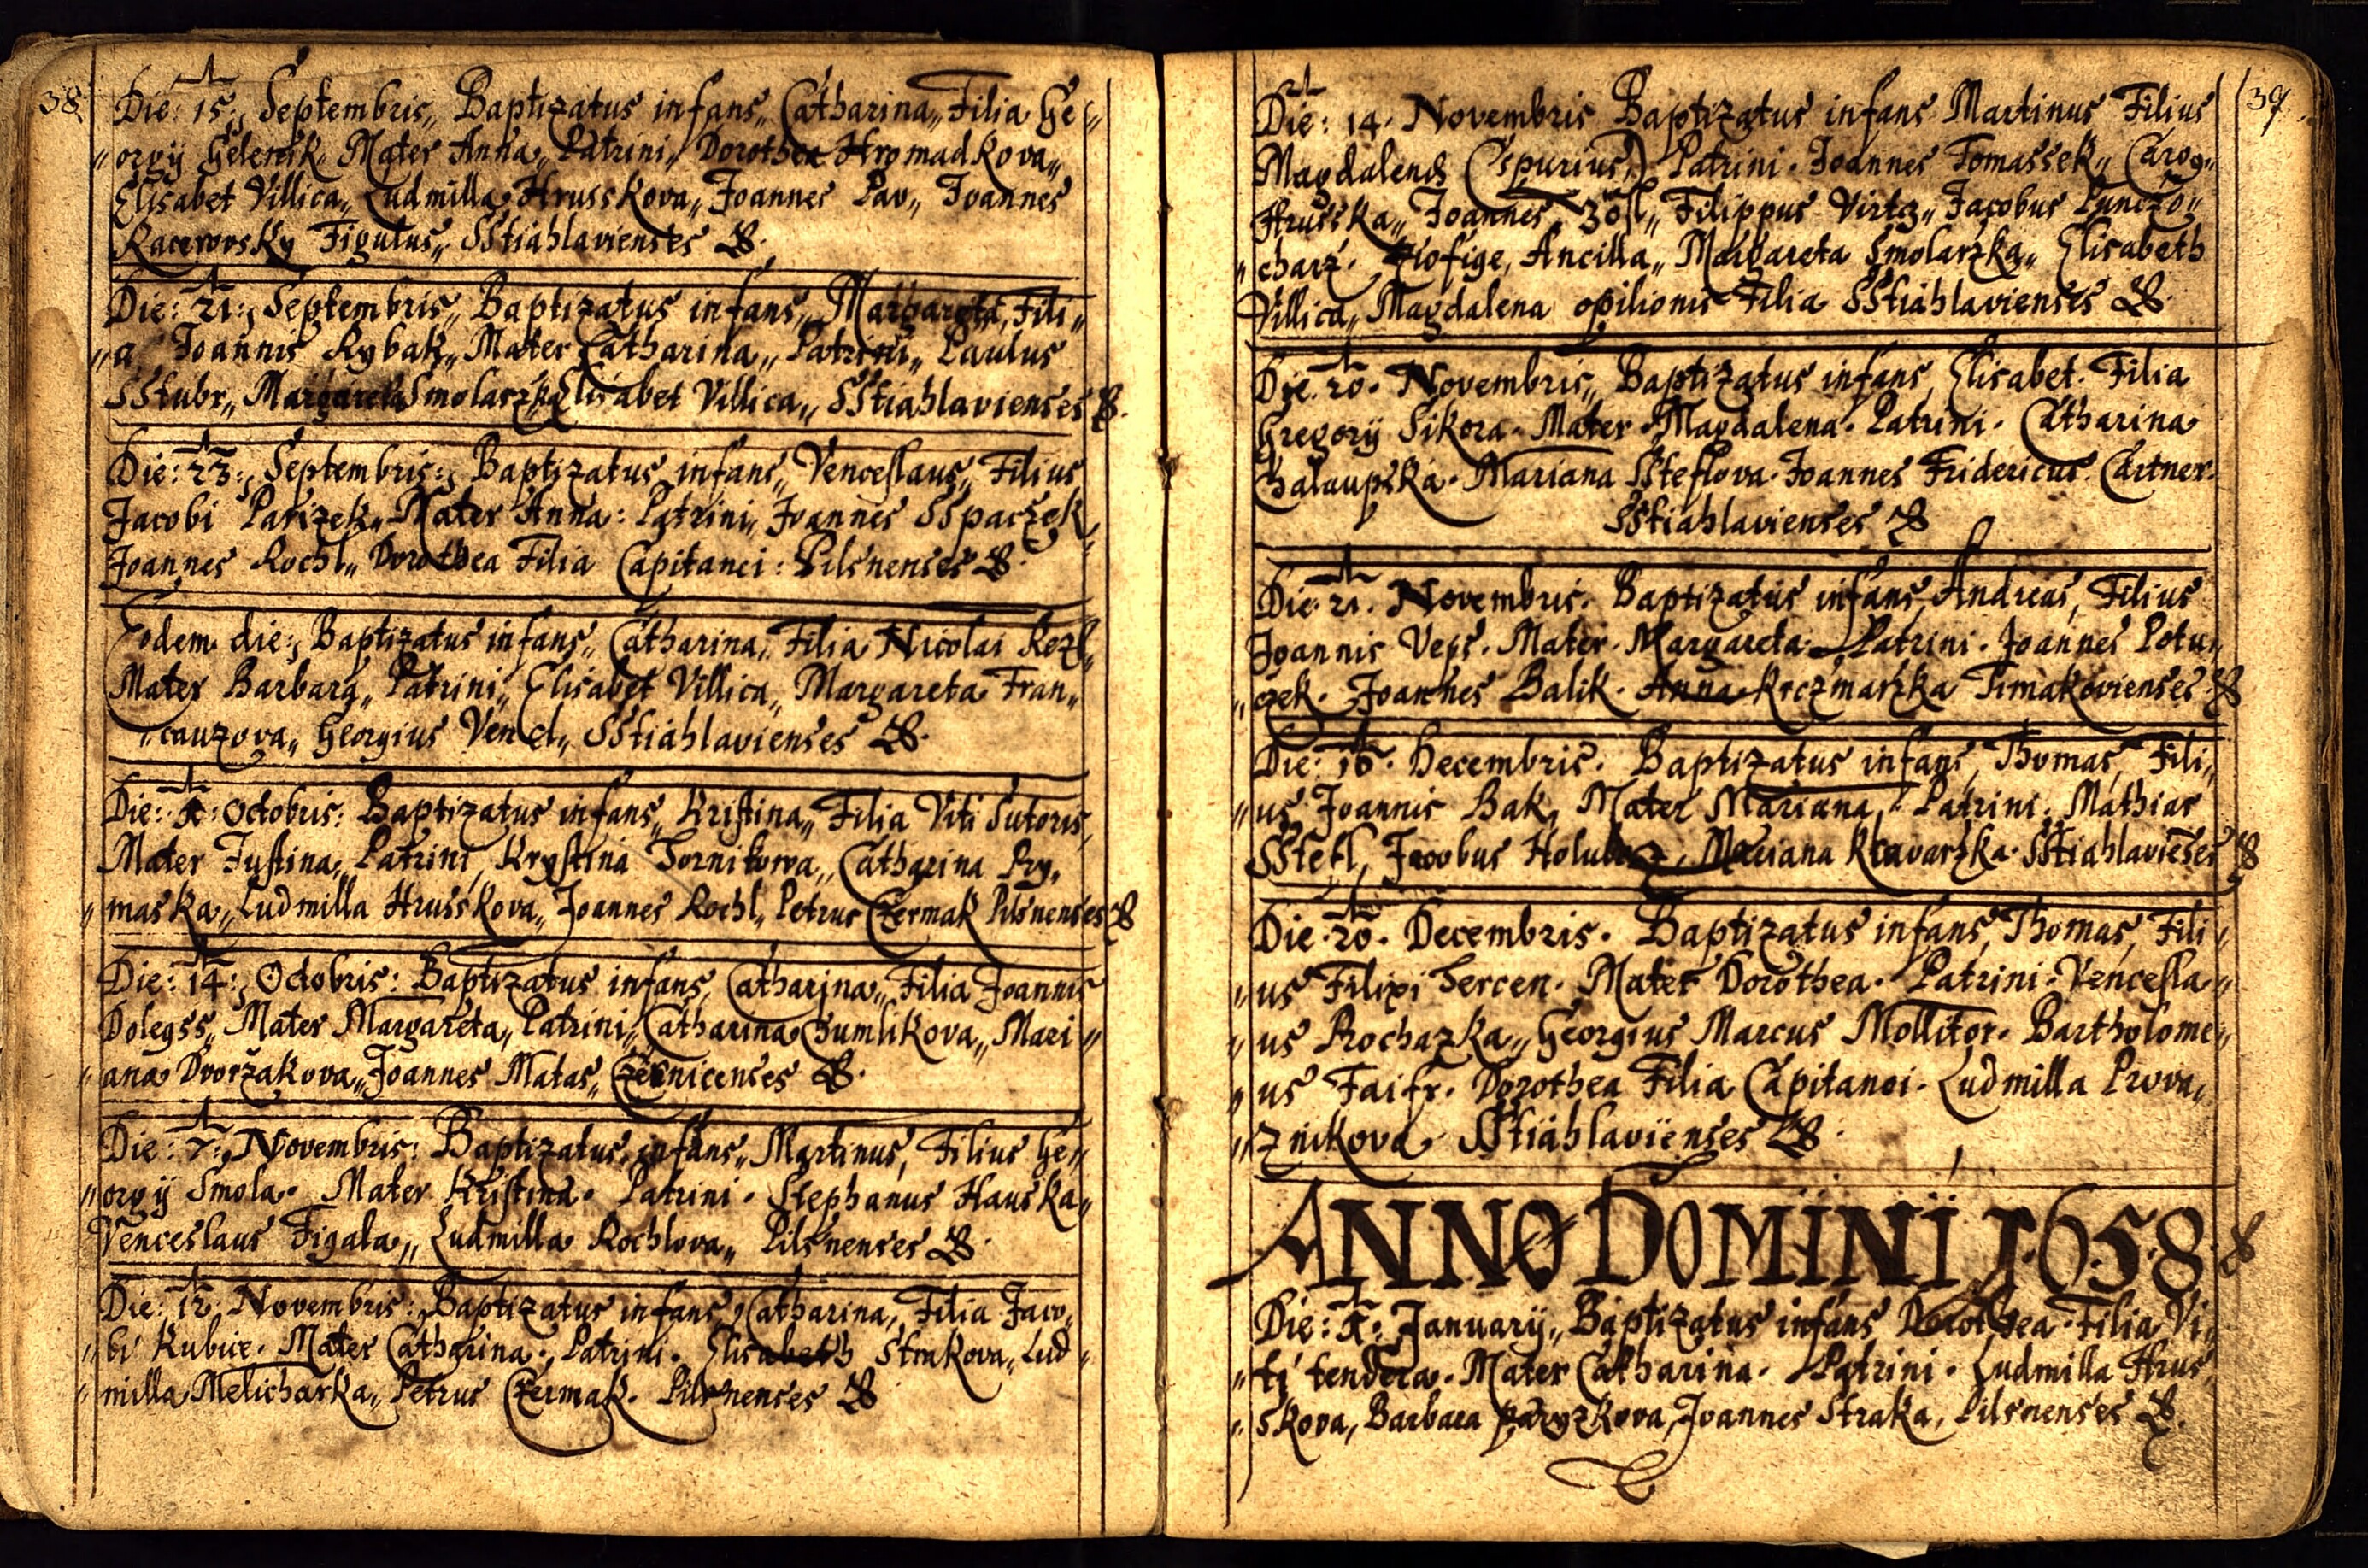 38
Die: 15:, Septembris,, Baptizatus infans,, Catharina,, Filia Ge,,
,,orgij Gelenik Mater Anna,, Patrini,, Dorothea Hromadkova,,
Elisabet Villica,, Ludmilla Hrusskova,, Joannes Pav,, Joannes
Racerovsky Figulus,, SStiahlavienses
Die: 21:, Septembris,, Baptizatus infans,, Margareta, Fili,,
,,a Joannis Rybak,, Mater Catharina,, Patrini,, Paulus
SStubr,, Margareta Smolarzka Elisabet Villica,, SStiahlavienses
Die: 23:, Septembris:, Baptizatus infans,, Venceslaus,, Filius
Jacobi Parizek,, Mater Anna: Patrini,, Joannes SSpaczek,,
Joannes Rochl,, Dorothea Filia Capitanei: Pilsnenses
Eodem die:, Baptizatus infans,, Catharina,, Filia Nicolai Rezl,,
Mater Barbara,, Patrini,, Elisabet Villica,, Margareta Fran,,
,,cauzova,, Georgius Vencl,, SStiahlavienses
Die: 1: Octobris: Baptizatus infans,, Kristina,, Filia Viti Sutoris,
Mater Justina,, Patrini, Krystina Tornikowa,, Catharina Ry,
,,maska,, Ludmilla Hrusskova,, Joannes Rochl,, Petrus Czermak Pilsnenses
Die: 14:, Octobris: Baptizatus infans, Catharina,, Filia Joannis
Dolegss,, Mater Margareta,, Patrini,, Catharina Chumlikova,, Mari,,
,,ana Dvorzakova,, Joannes Matas,, Czernicenses
Die: 7:, Novembris: Baptizatus infans,, Martinus, Filius Ge,,
,,orgij Smola. Mater Kristina. Patrini. Stephanus Hauska,,
Venceslaus Figala,, Ludmilla Rochlova,, Pilsnenses
Die: 12, Novembris: Baptizatus infans, Catharina,, Filia Jaco,,
,,bi Kubice. Mater Catharina., Patrini. Elisabeth Strakova,, Lud,,
,,milla Melicharka,, Petrus Czermak. Pilsnenses
39
Die: 14. Novembris Baptizatus infans Martinus Filius
Magdalenæ (spurius,) Patrini. Joannes Tomassek,, Carog,,
Hrusska,, Joannes Zosl,, Filippus Virtz,, Jacobus Punczo,,
,,charz. Ancilla,, Margareta Smolarzka,, Elisabeth
Villica,, Magdalena opilionis Filia SStiahlavienses
Die. 20. Novembris,, Baptizatus infans, Elisabet. Filia
Gregorij Sikora. Mater. Magdalena. Patrini. Catharina
Chalaupska. Mariana SSteflova. Joannes Fridericus Cartner.
SStiahlavienses
Die. 21. Novembris. Baptizatus infans, Andreas, Filius
Joannis Veps. Mater. Margareta. Patrini. Joannes Potu,,
,,czek. Joannes Balik. Anna Krczmarzka Timakovienses
Die: 16. Decembris. Baptizatus infans, Thomas, Fili,,
,,us Joannis Bak, Mater Mariana, Patrini, Mathias
SStefl, Jacobus Holubecz, Mariana Kravarzka. SStiahlavieses
Die. 20. Decembris. Baptizatus infans, Thomas, Fili,,
,,us Filipi Tercen. Mater Dorothea. Patrini. Vencesla,,
,,us Prochazka,, Georgius Marcus Mollitor. Bartholome,,
,,us Faifr. Dorothea Filia Capitanei. Ludmilla Prova,,
,,znikova. SStiahlavienses
ANNO DOMINI 1.6.5.8.
Die: 1. Januarij,, Baptizatus infans Dorothea. Filia Vi,,
,,ti tendera. Mater Catharina. Patrini. Ludmilla Hrus,,
,,skova, Barbara paryzkova, Joannes Straka, Pilsnenses